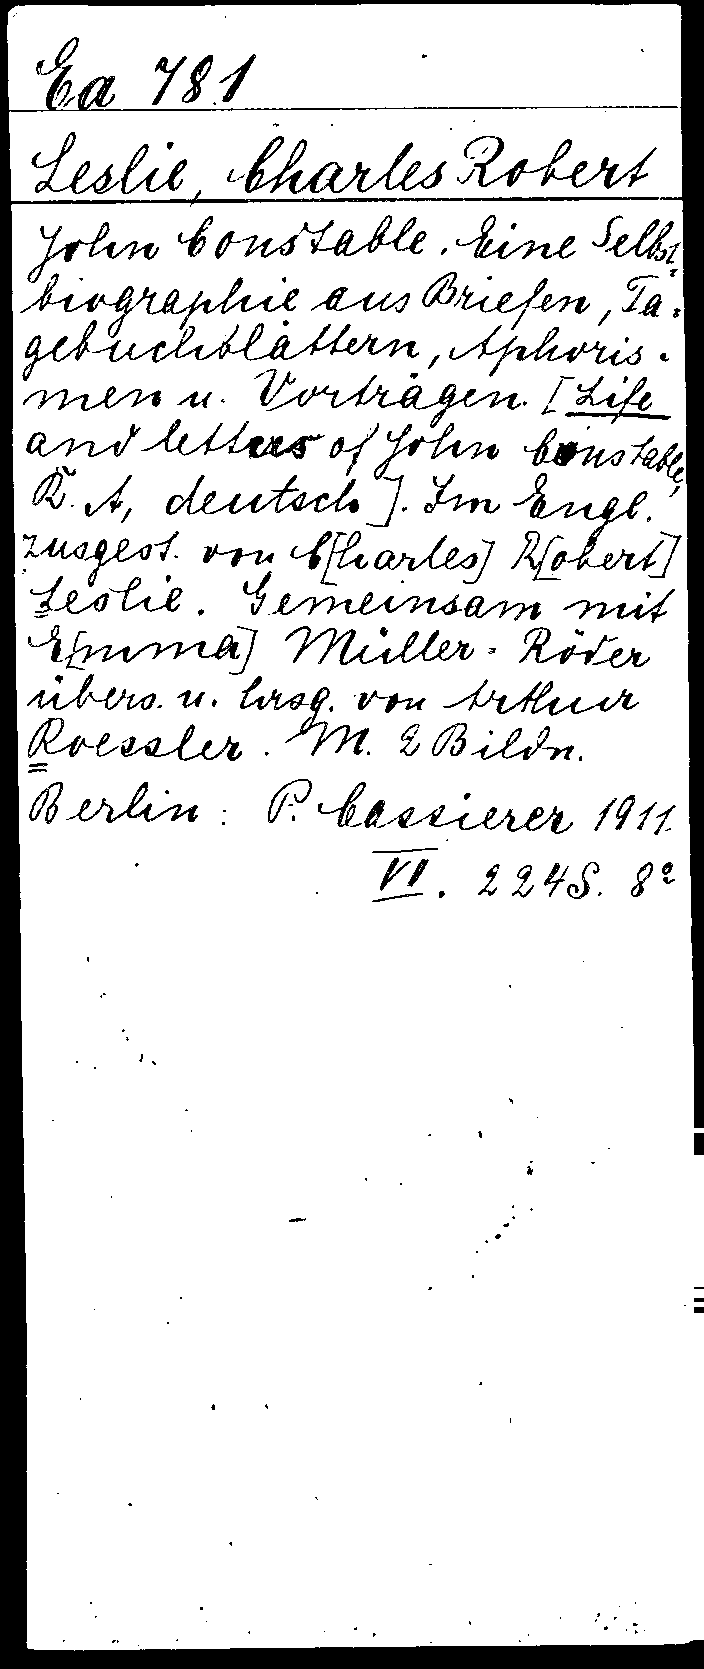 Ea 781
Leslie, Charles Robert
John Constable. Eine Selbst-
biographie aus Briefen, Ta-
gebuchblättern, Aphoris-
men u. Vorträgen. [Life
and letters of John Constable,
R. A, deutsch]. Im Engl.
zusgest. von C[harles] R[obert]
Leslie. Gemeinsam mit
E[mma] Müller-Röder
übers. u. hrsg. von Arthur
Roessler. M. 2 Bildn.
Berlin: P. Cassierer 1911.
VI. 224S. 8°